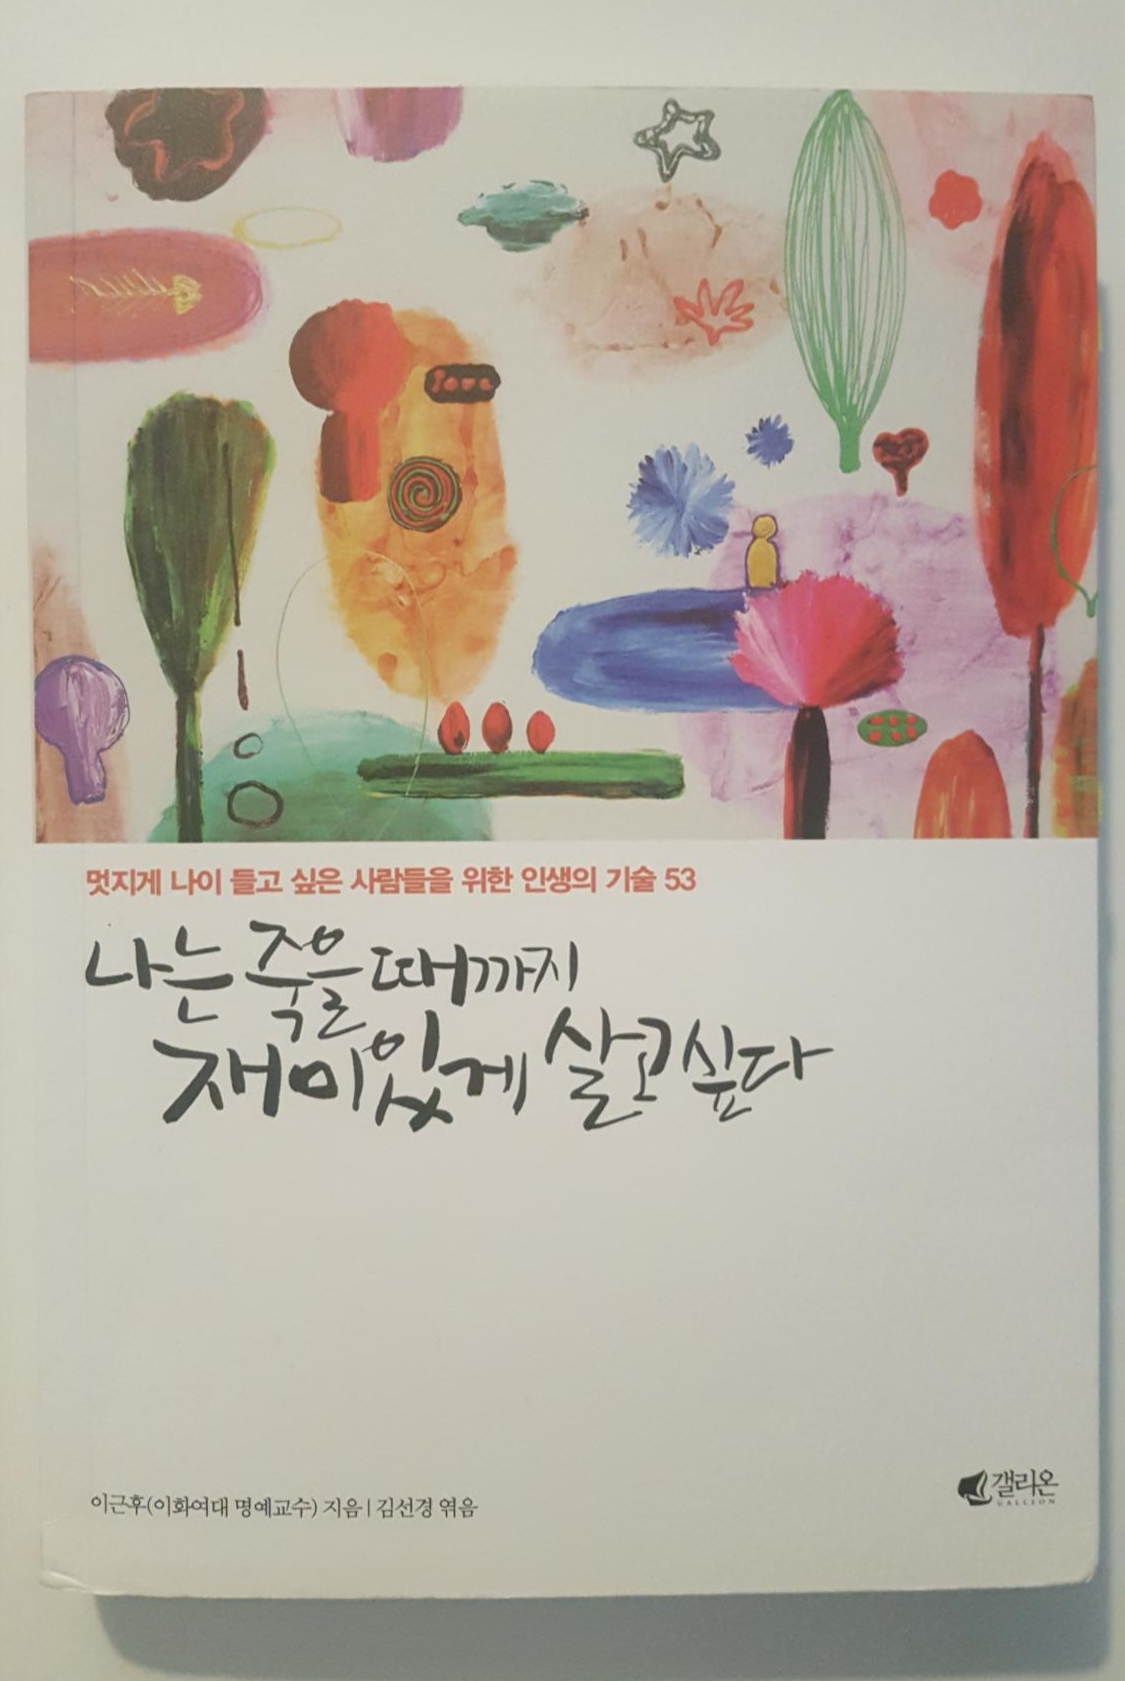 love
멋지게 나이 들고 싶은 사람들을 위한 인생의 기술 53
나는 죽을 때까지
재미있게 살고 싶다
이근후(이화여대 명예교수) 지음 | 김선경 엮음
갤리온
GALLEON